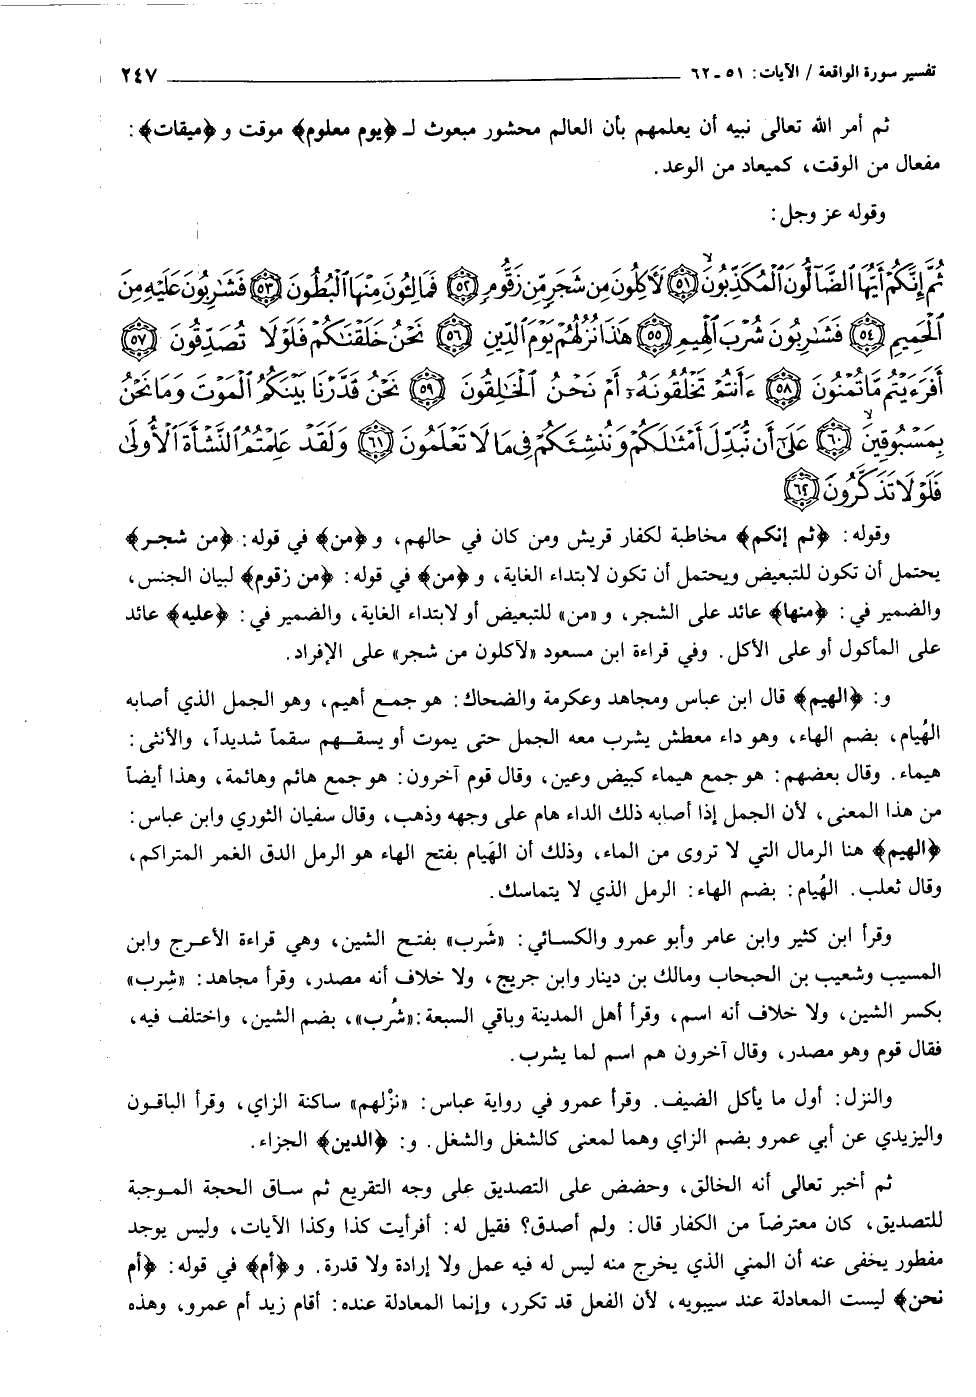 تفسير سورة الواقعة / الآيات: ٥١ - ٦٢ ٢٤٧
ثم أمر الله تعالى نبيه أن يعلمهم بأن العالم محشور مبعوث لـ ﴿يوم معلوم﴾ موقت و﴿ميقات﴾:
مفعال من الوقت، كميعاد من الوعد.
وقوله عز وجل:
ثُمَّ إِنَّكُمْ أَيُّهَا ٱلضَّآلُّونَ ٱلْمُكَذِّبُونَ ﴿٥١﴾ لَأَكِلُونَ مِن شَجَرٍ مِّن زَقُّومٍ ﴿٥٢﴾ فَمَالِـُٔونَ مِنْهَا ٱلْبُطُونَ ﴿٥٣﴾ فَشَٰرِبُونَ عَلَيْهِ مِنَ
ٱلْحَمِيمِ ﴿٥٤﴾ فَشَٰرِبُونَ شُرْبَ ٱلْهِيمِ ﴿٥٥﴾ هَٰذَا نُزُلُهُمْ يَوْمَ ٱلدِّينِ ﴿٥٦﴾ نَحْنُ خَلَقْنَٰكُمْ فَلَوْلَا تُصَدِّقُونَ ﴿٥٧﴾
أَفَرَءَيْتُم مَّا تُمْنُونَ ﴿٥٨﴾ ءَأَنتُمْ تَخْلُقُونَهُۥٓ أَمْ نَحْنُ ٱلْخَٰلِقُونَ ﴿٥٩﴾ نَحْنُ قَدَّرْنَا بَيْنَكُمُ ٱلْمَوْتَ وَمَا نَحْنُ
بِمَسْبُوقِينَ ﴿٦٠﴾ عَلَىٰٓ أَن نُّبَدِّلَ أَمْثَٰلَكُمْ وَنُنشِئَكُمْ فِى مَا لَا تَعْلَمُونَ ﴿٦١﴾ وَلَقَدْ عَلِمْتُمُ ٱلنَّشْأَةَ ٱلْأُولَىٰ
فَلَوْلَا تَذَكَّرُونَ ﴿٦٢﴾
وقوله: ﴿ثم إنكم﴾ مخاطبة لكفار قريش ومن كان في حالهم، و﴿من﴾ في قوله: ﴿من شجر﴾
يحتمل أن تكون للتبعيض ويحتمل أن تكون لابتداء الغاية، و﴿من﴾ في قوله: ﴿من زقوم﴾ لبيان الجنس،
والضمير في: ﴿منها﴾ عائد على الشجر، و«من» للتبعيض أو لابتداء الغاية، والضمير في: ﴿عليه﴾ عائد
على المأكول أو على الأكل. وفي قراءة ابن مسعود «لآكلون من شجر» على الإفراد.
و: ﴿الهيم﴾ قال ابن عباس ومجاهد وعكرمة والضحاك: هو جمع أهيم، وهو الجمل الذي أصابه
الهُيام، بضم الهاء، وهو داء معطش يشرب معه الجمل حتى يموت أو يسقــهم سقماً شديداً، والأنثى:
هيماء. وقال بعضهم: هو جمع هيماء كبيض وعين، وقال قوم آخرون: هو جمع هائم وهائمة، وهذا أيضاً
من هذا المعنى، لأن الجمل إذا أصابه ذلك الداء هام على وجهه وذهب، وقال سفيان الثوري وابن عباس:
﴿الهيم﴾ هنا الرمال التي لا تروى من الماء، وذلك أن الهَيام بفتح الهاء هو الرمل الدق الغمر المتراكم،
وقال ثعلب. الهُيام: بضم الهاء: الرمل الذي لا يتماسك.
وقرأ ابن كثير وابن عامر وأبو عمرو والكسائي: «شَرب» بفتح الشين، وهي قراءة الأعرج وابن
المسيب وشعيب بن الحبحاب ومالك بن دينار وابن جريج، ولا خلاف أنه مصدر، وقرأ مجاهد: «شِرب»
بكسر الشين، ولا خلاف أنه اسم، وقرأ أهل المدينة وباقي السبعة: «شُرب»، بضم الشين، واختلف فيه،
فقال قوم وهو مصدر، وقال آخرون هم اسم لما يشرب.
والنزل: أول ما يأكل الضيف. وقرأ عمرو في رواية عباس: «نزْلهم» ساكنة الزاي، وقرأ الباقون
واليزيدي عن أبي عمرو بضم الزاي وهما لمعنى كالشغل والشغل. و: ﴿الدين﴾ الجزاء.
ثم أخبر تعالى أنه الخالق، وحضض على التصديق على وجه التقريع ثم ساق الحجة الموجبة
للتصديق، كان معترضاً من الكفار قال: ولم أصدق؟ فقيل له: أفرأيت كذا وكذا الآيات، وليس يوجد
مفطور يخفى عنه أن المني الذي يخرج منه ليس له فيه عمل ولا إرادة ولا قدرة. و﴿أم﴾ في قوله: ﴿أم
نحن﴾ ليست المعادلة عند سيبويه، لأن الفعل قد تكرر، وإنما المعادلة عنده: أقام زيد أم عمرو، وهذه